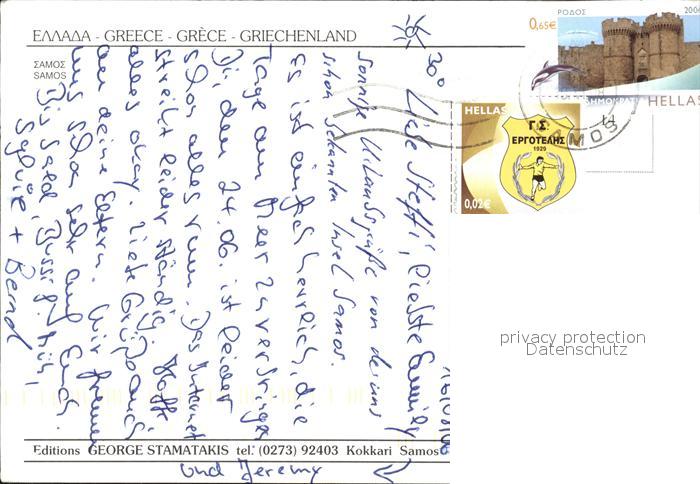 ΕΛΛΑΔΑ - GREECE - GRÈCE - GRIECHENLAND
ΣΑΜΟΣ
SAMOS
ΡΟΔΟΣ
0,65€
HELLAS
HELLAS
Γ.Σ.
ΕΡΓΟΤΕΛΗΣ
1929
0,02€
SAMOS
privacy protection
Datenschutz
30°
Liebe Steffi, liebste Family
Sonnige Urlaubsgrüße von der uns
schon bekannten Insel Samos.
Es ist einfach herrlich, die
Tage am Meer zu verbringen
Di, den 24.06. ist leider
schon alles rum. Das Internet
streikt leider ständig. Hoffe
alles okay. Liebe Grüße auch
an deine Eltern. Wir freuen
uns schon sehr auf Euch.
Bis bald, Bussi
Sylvie + Bernd
und Jeremy
Editions GEORGE STAMATAKIS tel. (0273) 92403 Kokkari Samos